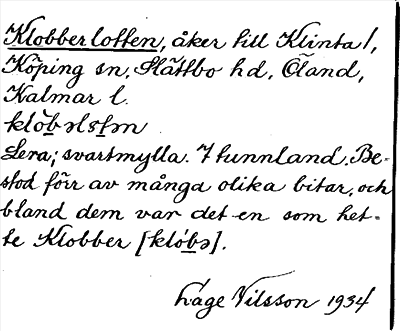 Klobberlotten, åker till Klinta 1,
Köping sn, Slättbo hd, Öland,
Kalmar l.
Lera; svartmylla. 7 tunnland. Be-
stod förr av många olika bitar, och
bland dem var det en som het-
te Klobber [klób̲ə].
Åge Nilsson 1934